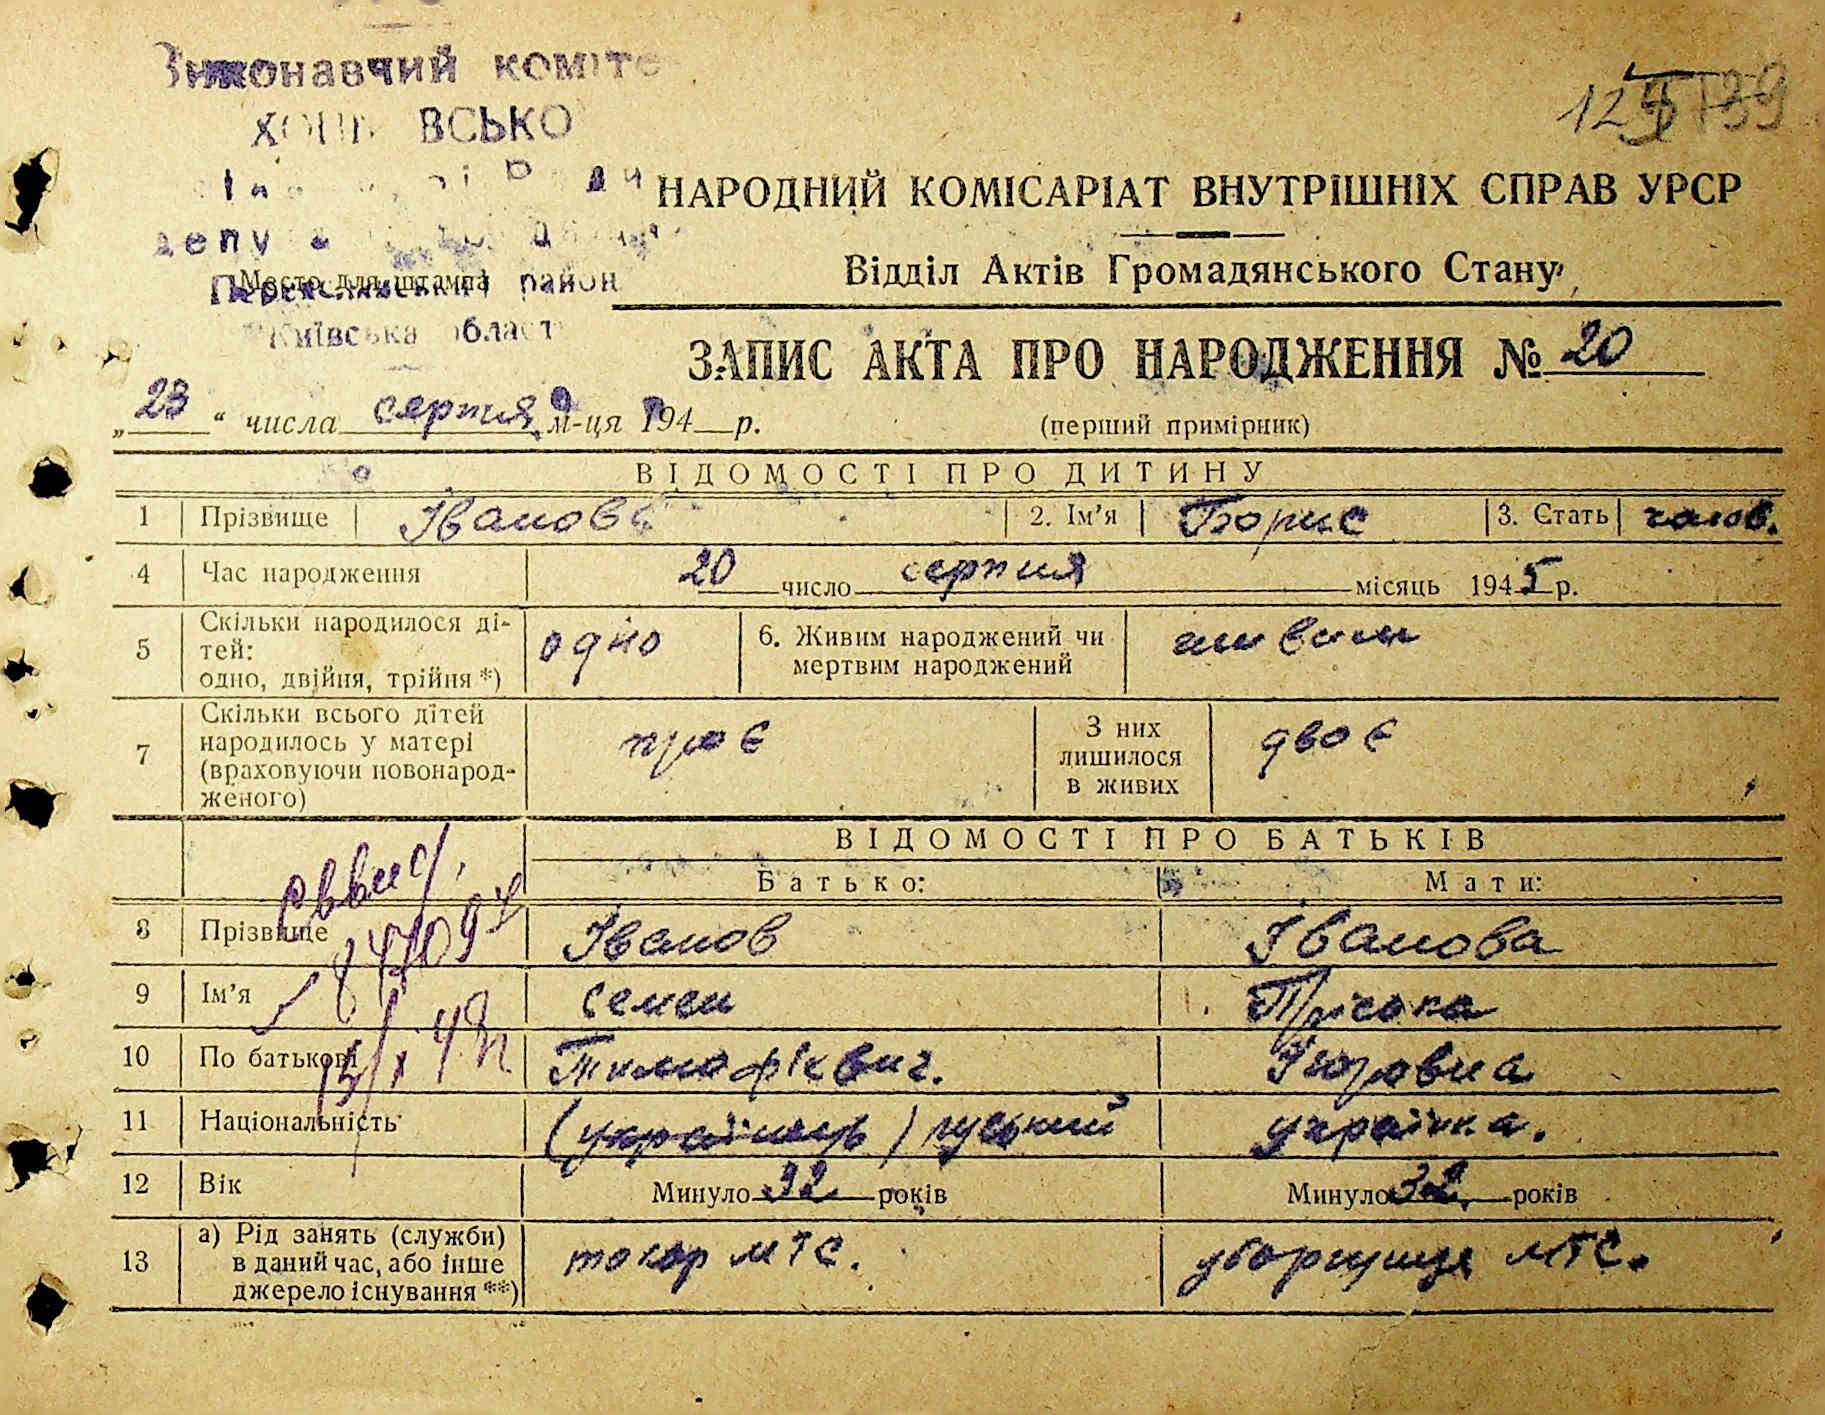 Виконавчий коміте
ВСЬКО
депу
Место для штампа
Переяславський район
Київська област
12
139
НАРОДНИЙ КОМІСАРІАТ ВНУТРІШНІХ СПРАВ УРСР
Відділ Актів Громадянського Стану
ЗАПИС АКТА ПРО НАРОДЖЕННЯ № 20
„23“ числа серпня м-ця 194 р.
(перший примірник)
ВІДОМОСТІ ПРО ДИТИНУ
1 Прізвище Іванов 2. Ім’я Борис 3. Стать чолов.
4 Час народження 20 число серпня місяць 1945 р.
5 Скільки народилося ді-
тей:
одно, двійня, трійня *)
одно
6. Живим народжений чи
мертвим народжений
живим
7 Скільки всього дітей
народилось у матері
(враховуючи новонарод-
женого)
троє
З них
лишилося
в живих
двоє
ВІДОМОСТІ ПРО БАТЬКІВ
Батько: Мати:
8 Прізвище Іванов Іванова
9 Ім’я Семен Пріська
10 По батькові Тимофієвич.
11 Національність (українець) руський українка.
12 Вік Минуло 32 років Минуло 32 років
13 а) Рід занять (служби)
в даний час, або інше
джерело існування **)
токар МТС. уборщиця МТС.